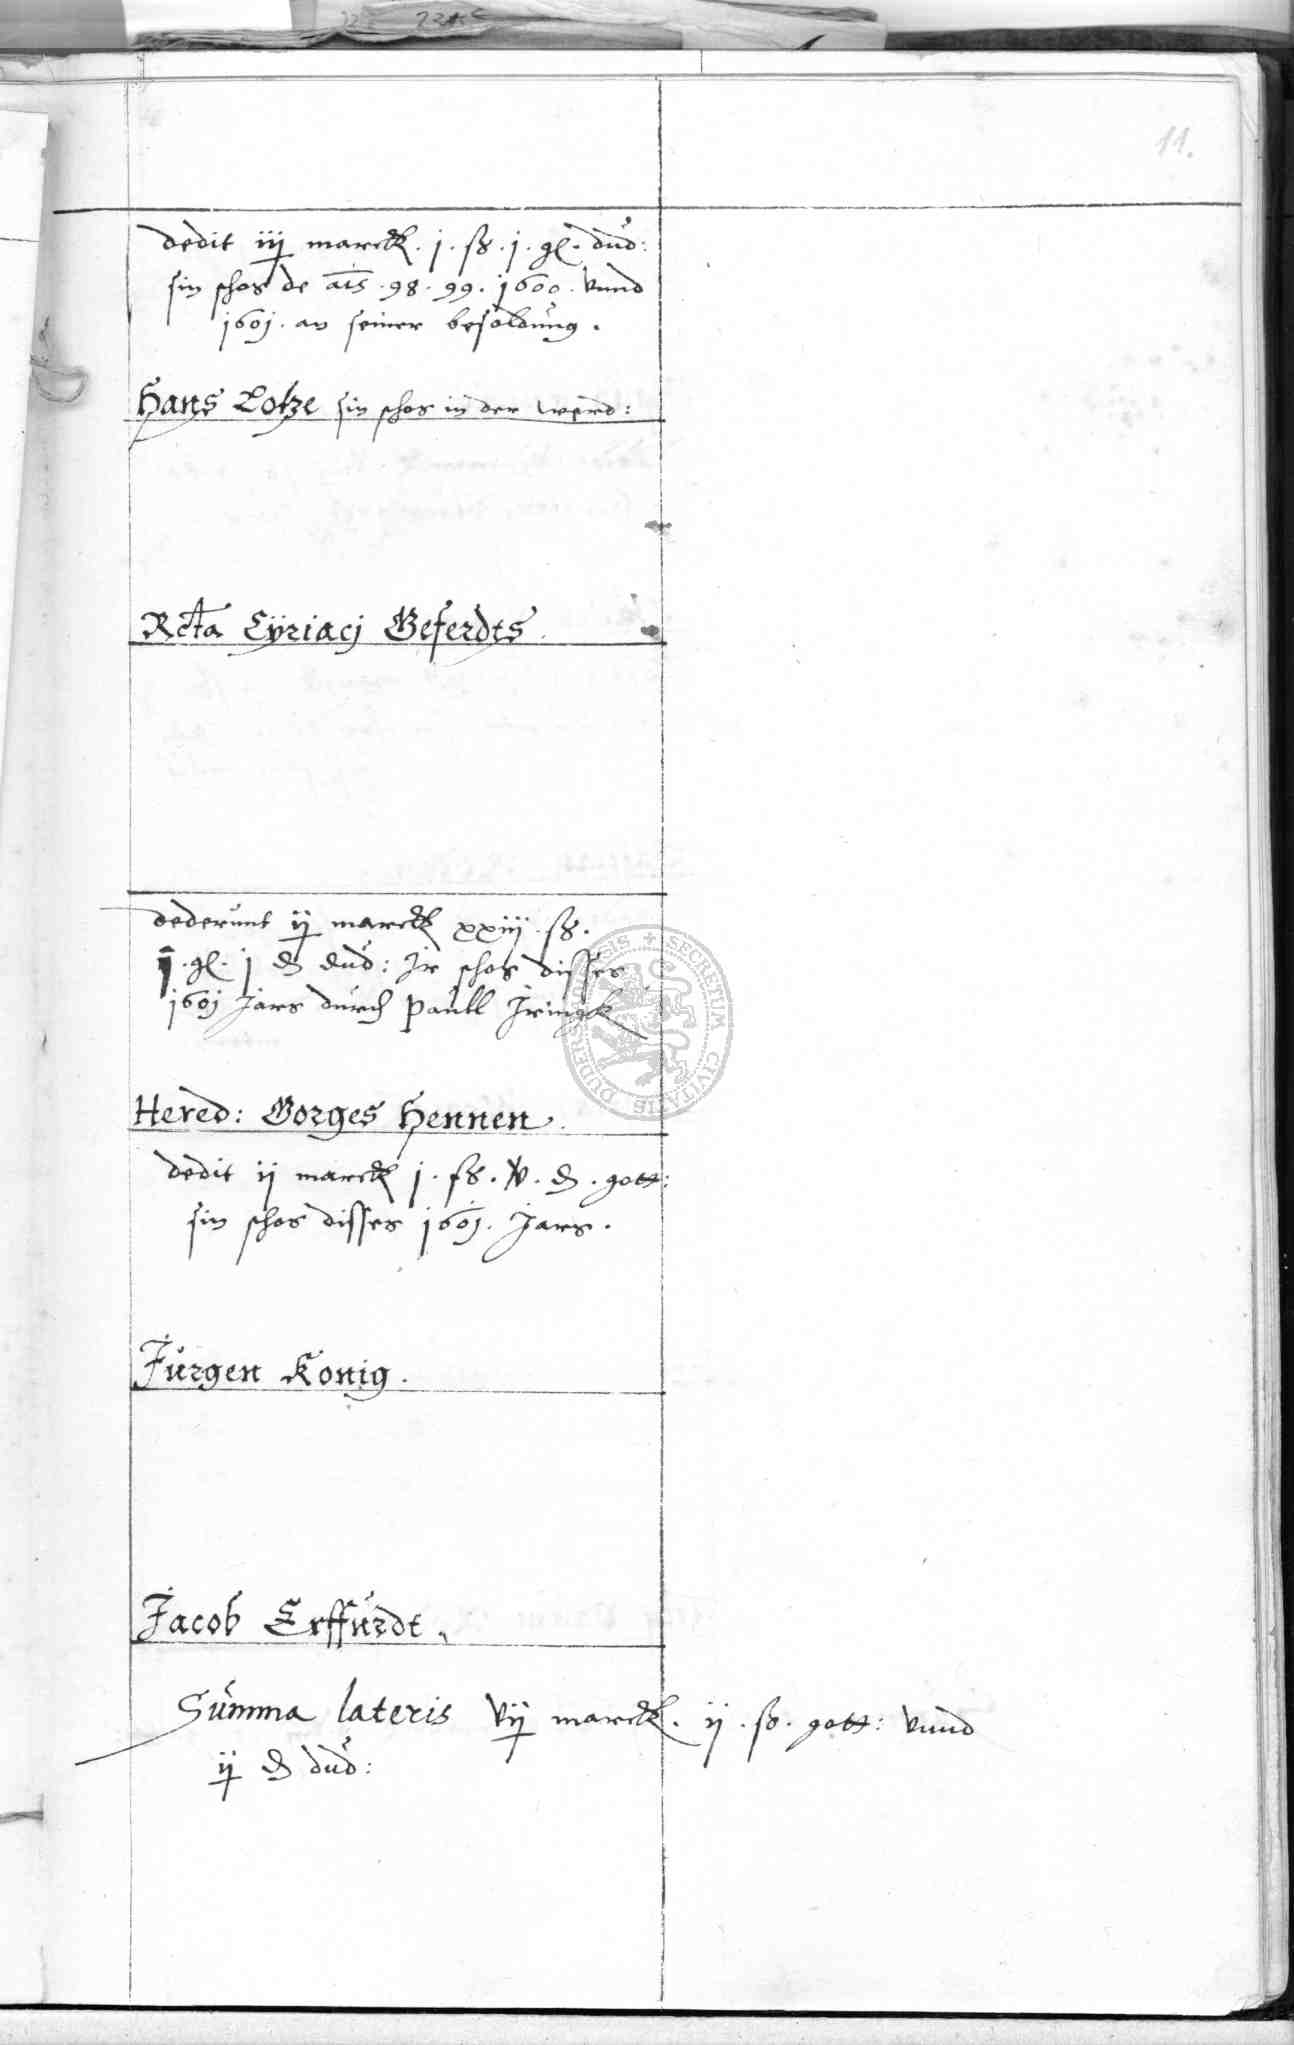 11.
dedit iij marck . j . ß . j . gl . dud:
sin schos de a͞ts . 98 . 99 . 1600 . vnnd
1601 . an seiner besoldung .
Hans Lotze sin schos in der werd:
Rcta Cÿriacj Geferdts .
dederunt ij marck xxiij . ß .
j . gl . j ₰ dud: Jr schos disses
1601 Jars durch Paull Jringk
Hered: Gorges Hennen .
dedit ij marck j . ß . v . ₰ . gott:
sin schos disses 1601 . Jars .
Jurgen Konig .
Jacob Erffurdt .
Summa lateris vij marck . ij . ß . gott: vnnd
ij ₰ dud:
SECRETUM CIVITATIS DUDERSTADENSIS